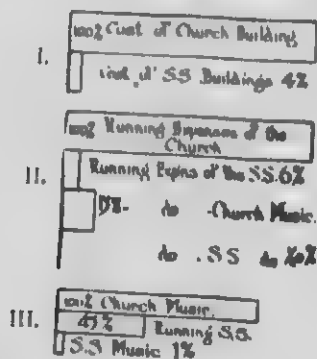 100% Cost of Church Building
I.
Cost of SS Buildings 4%
100% Running Expenses of the
Church
II.
Running Expns of the SS. 6%
do -Church Music.
do . SS do
III.
100% Church Music.
Running S.S.
S.S Music 1%